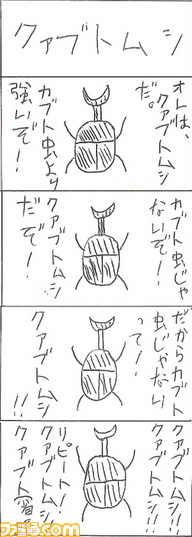 クァブトムシ
オレは、
クァブトムシ
だ。
カブト虫より
強いぞ!
カブト虫じゃ
ないぞ!
クァブトムシ
だぞ!
だからカブト
虫じゃない
って!
クァブトムシ!!
クァブトムシ!!
クァブトムシ!!
リピート!
クァブトムシ
クァブト
ファミ通.com